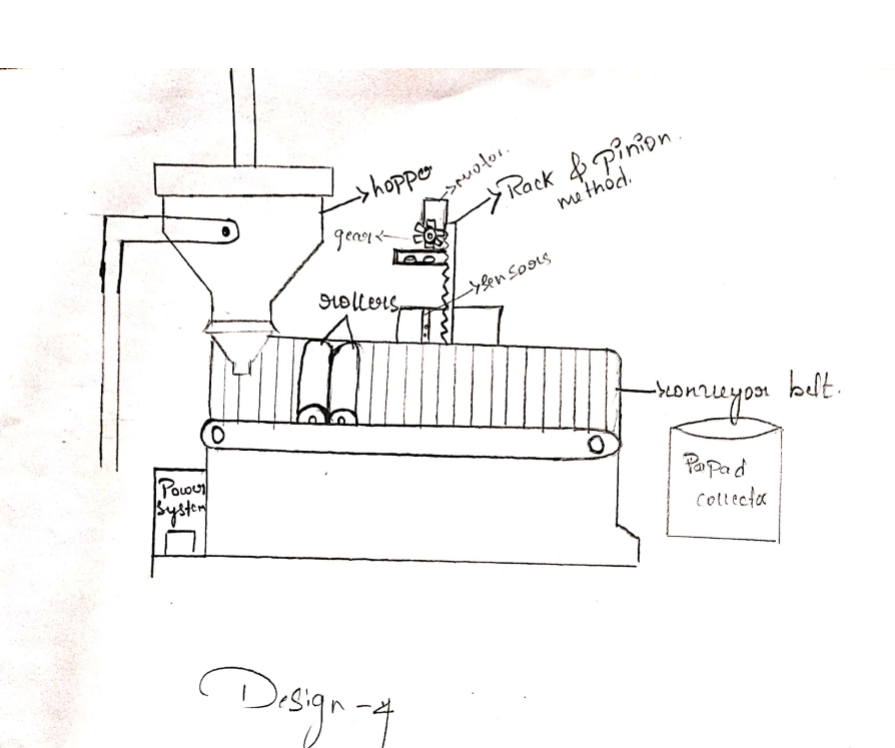 hopper
motor.
Rack & Pinion
method.
gear
sensors
rollers
conveyor belt.
Papad
collector
Power
System
Design-4